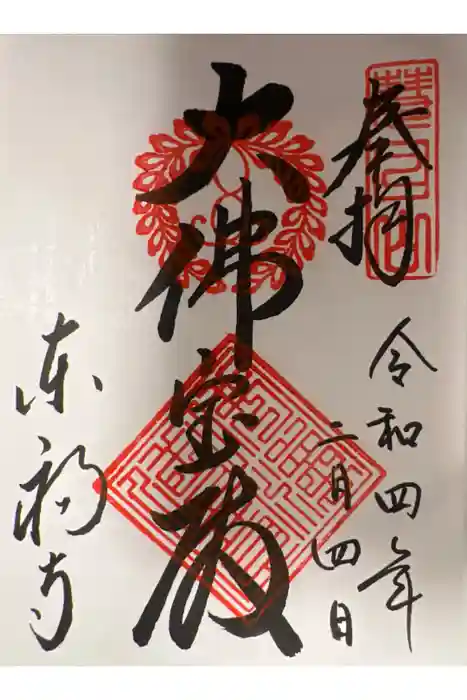 奉拝
令和四年
二月四日
大佛宝殿
東福寺